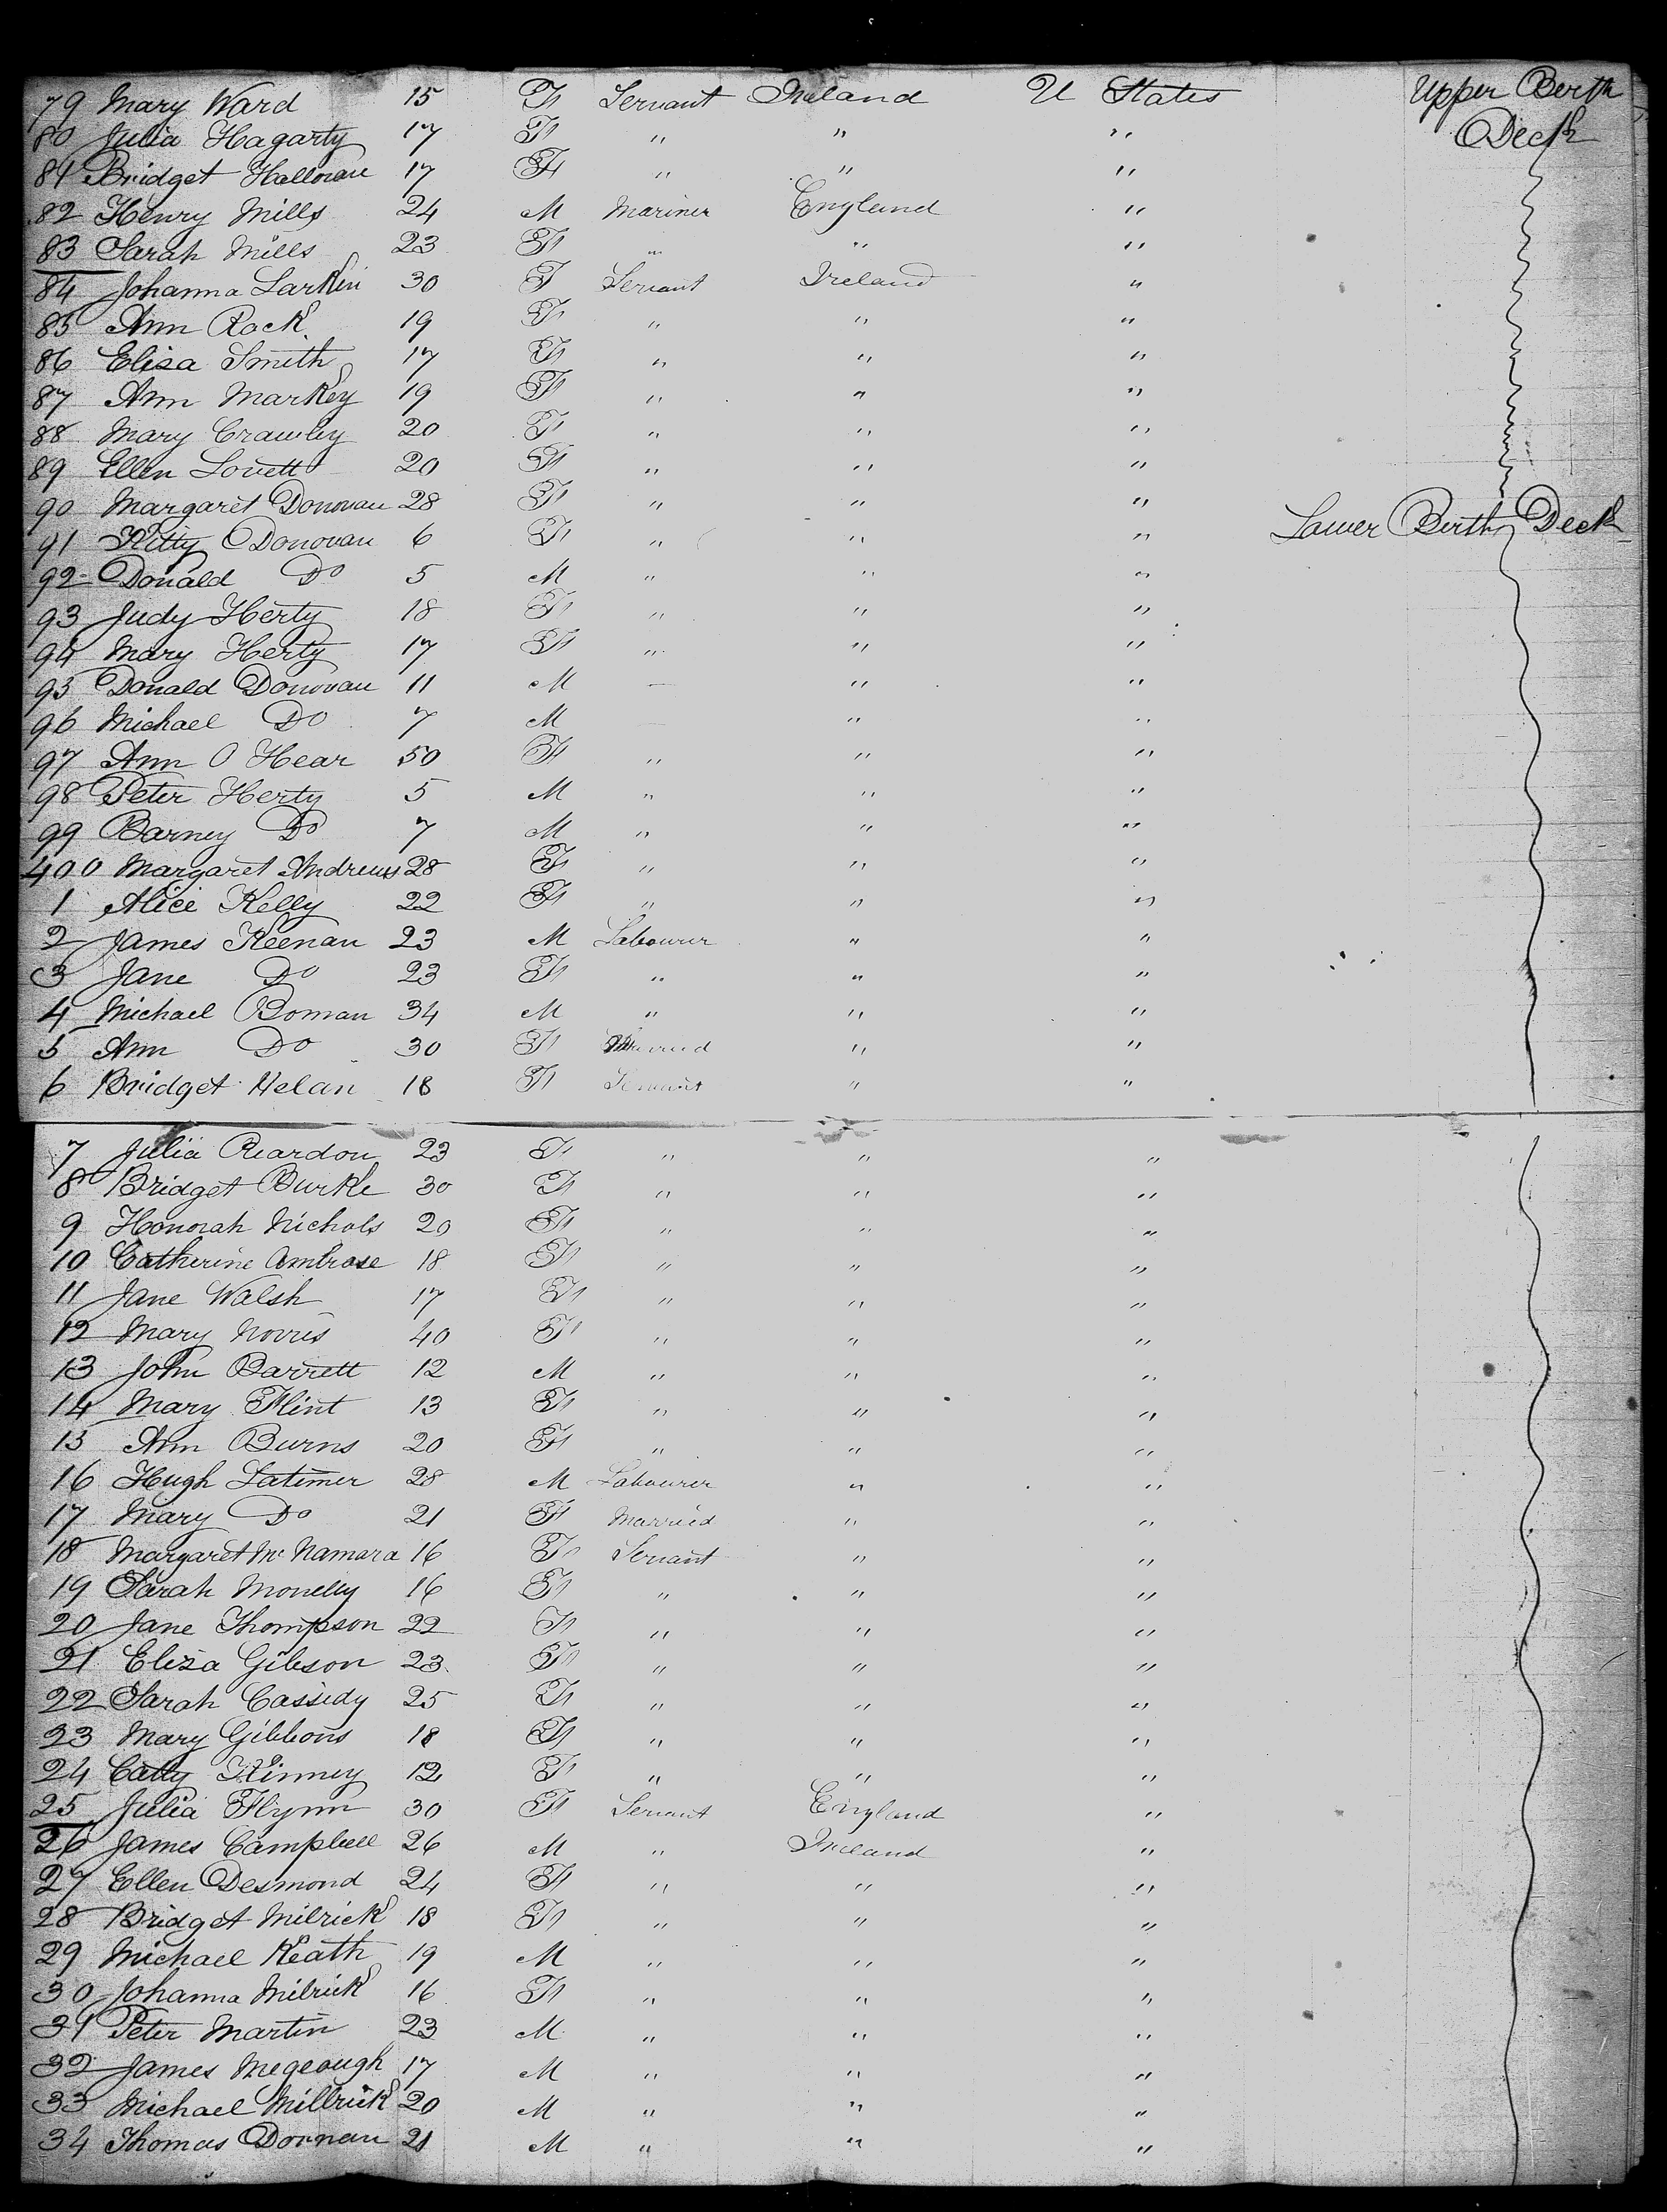 79 Mary Ward 15 F Servant Ireland U States Upper Berth
80 Julia Hagarty 17 F " " " Deck
81 Bridget Halloran 17 F " " "
82 Henry Mills 24 M Mariner England "
83 Sarah Mills 23 F " " "
84 Johanna Larkin 30 F Servant Ireland "
85 Ann Rock 19 F " " "
86 Eliza Smith 17 F " " "
87 Ann Markey 19 F " " "
88 Mary Crawley 20 F " " "
89 Ellen Lovett 20 F " " "
90 Margaret Donovan 28 F " " "
91 Kitty Donovan 6 F " " " Lower Berth Deck
92 Donald Do 5 M " " "
93 Judy Herty 18 F " " "
94 Mary Herty 17 F " " "
95 Donald Donovan 11 M — " "
96 Michael Do 7 M — " "
97 Ann O Hear 50 F " " "
98 Peter Herty 5 M " " "
99 Barney Do 7 M " " "
400 Margaret Andrews 28 F " " "
1 Alice Kelly 22 F " " "
2 James Keenan 23 M Labourer " "
3 Jane Do 23 F " " "
4 Michael Boman 34 M " " "
5 Ann Do 30 F Married " "
6 Bridget Helan 18 F Servant " "
7 Julia Reardon 23 F " " "
8 Bridget Burke 30 F " " "
9 Honorah Nichols 20 F " " "
10 Catherine Ambrose 18 F " " "
11 Jane Walsh 17 F " " "
12 Mary Norris 40 F " " "
13 John Barrett 12 M " " "
14 Mary Flint 13 F " " "
15 Ann Burns 20 F " " "
16 Hugh Latimer 28 M Labourer " "
17 Mary Do 21 F Married " "
18 Margaret Mc Namara 16 F Servant " "
19 Sarah Monelly 16 F " " "
20 Jane Thompson 22 F " " "
21 Eliza Gibson 23 F " " "
22 Sarah Cassidy 25 F " " "
23 Mary Gibbons 18 F " " "
24 Catty Kinney 12 F " " "
25 Julia Flynn 30 F Servant England "
26 James Campbell 26 M " Ireland "
27 Ellen Desmond 24 F " " "
28 Bridget Milrick 18 F " " "
29 Michael Keath 19 M " " "
30 Johanna Milrick 16 F " " "
31 Peter Martin 23 M " " "
32 James Megeough 17 M " " "
33 Michael Millrick 20 M " " "
34 Thomas Dornan 21 M " " "